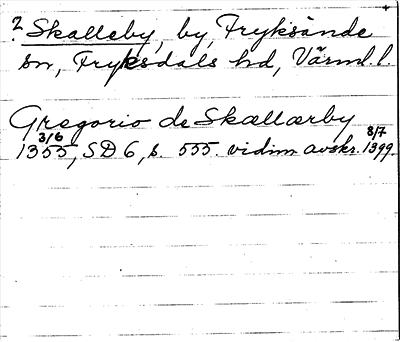 ? Skalleby, by, Fryksände
sn, Fryksdals hd, Värml. l.
Gregorio de Skællærby
1355 3/6, SD 6, s. 555. vidim avskr. 1399 8/7.